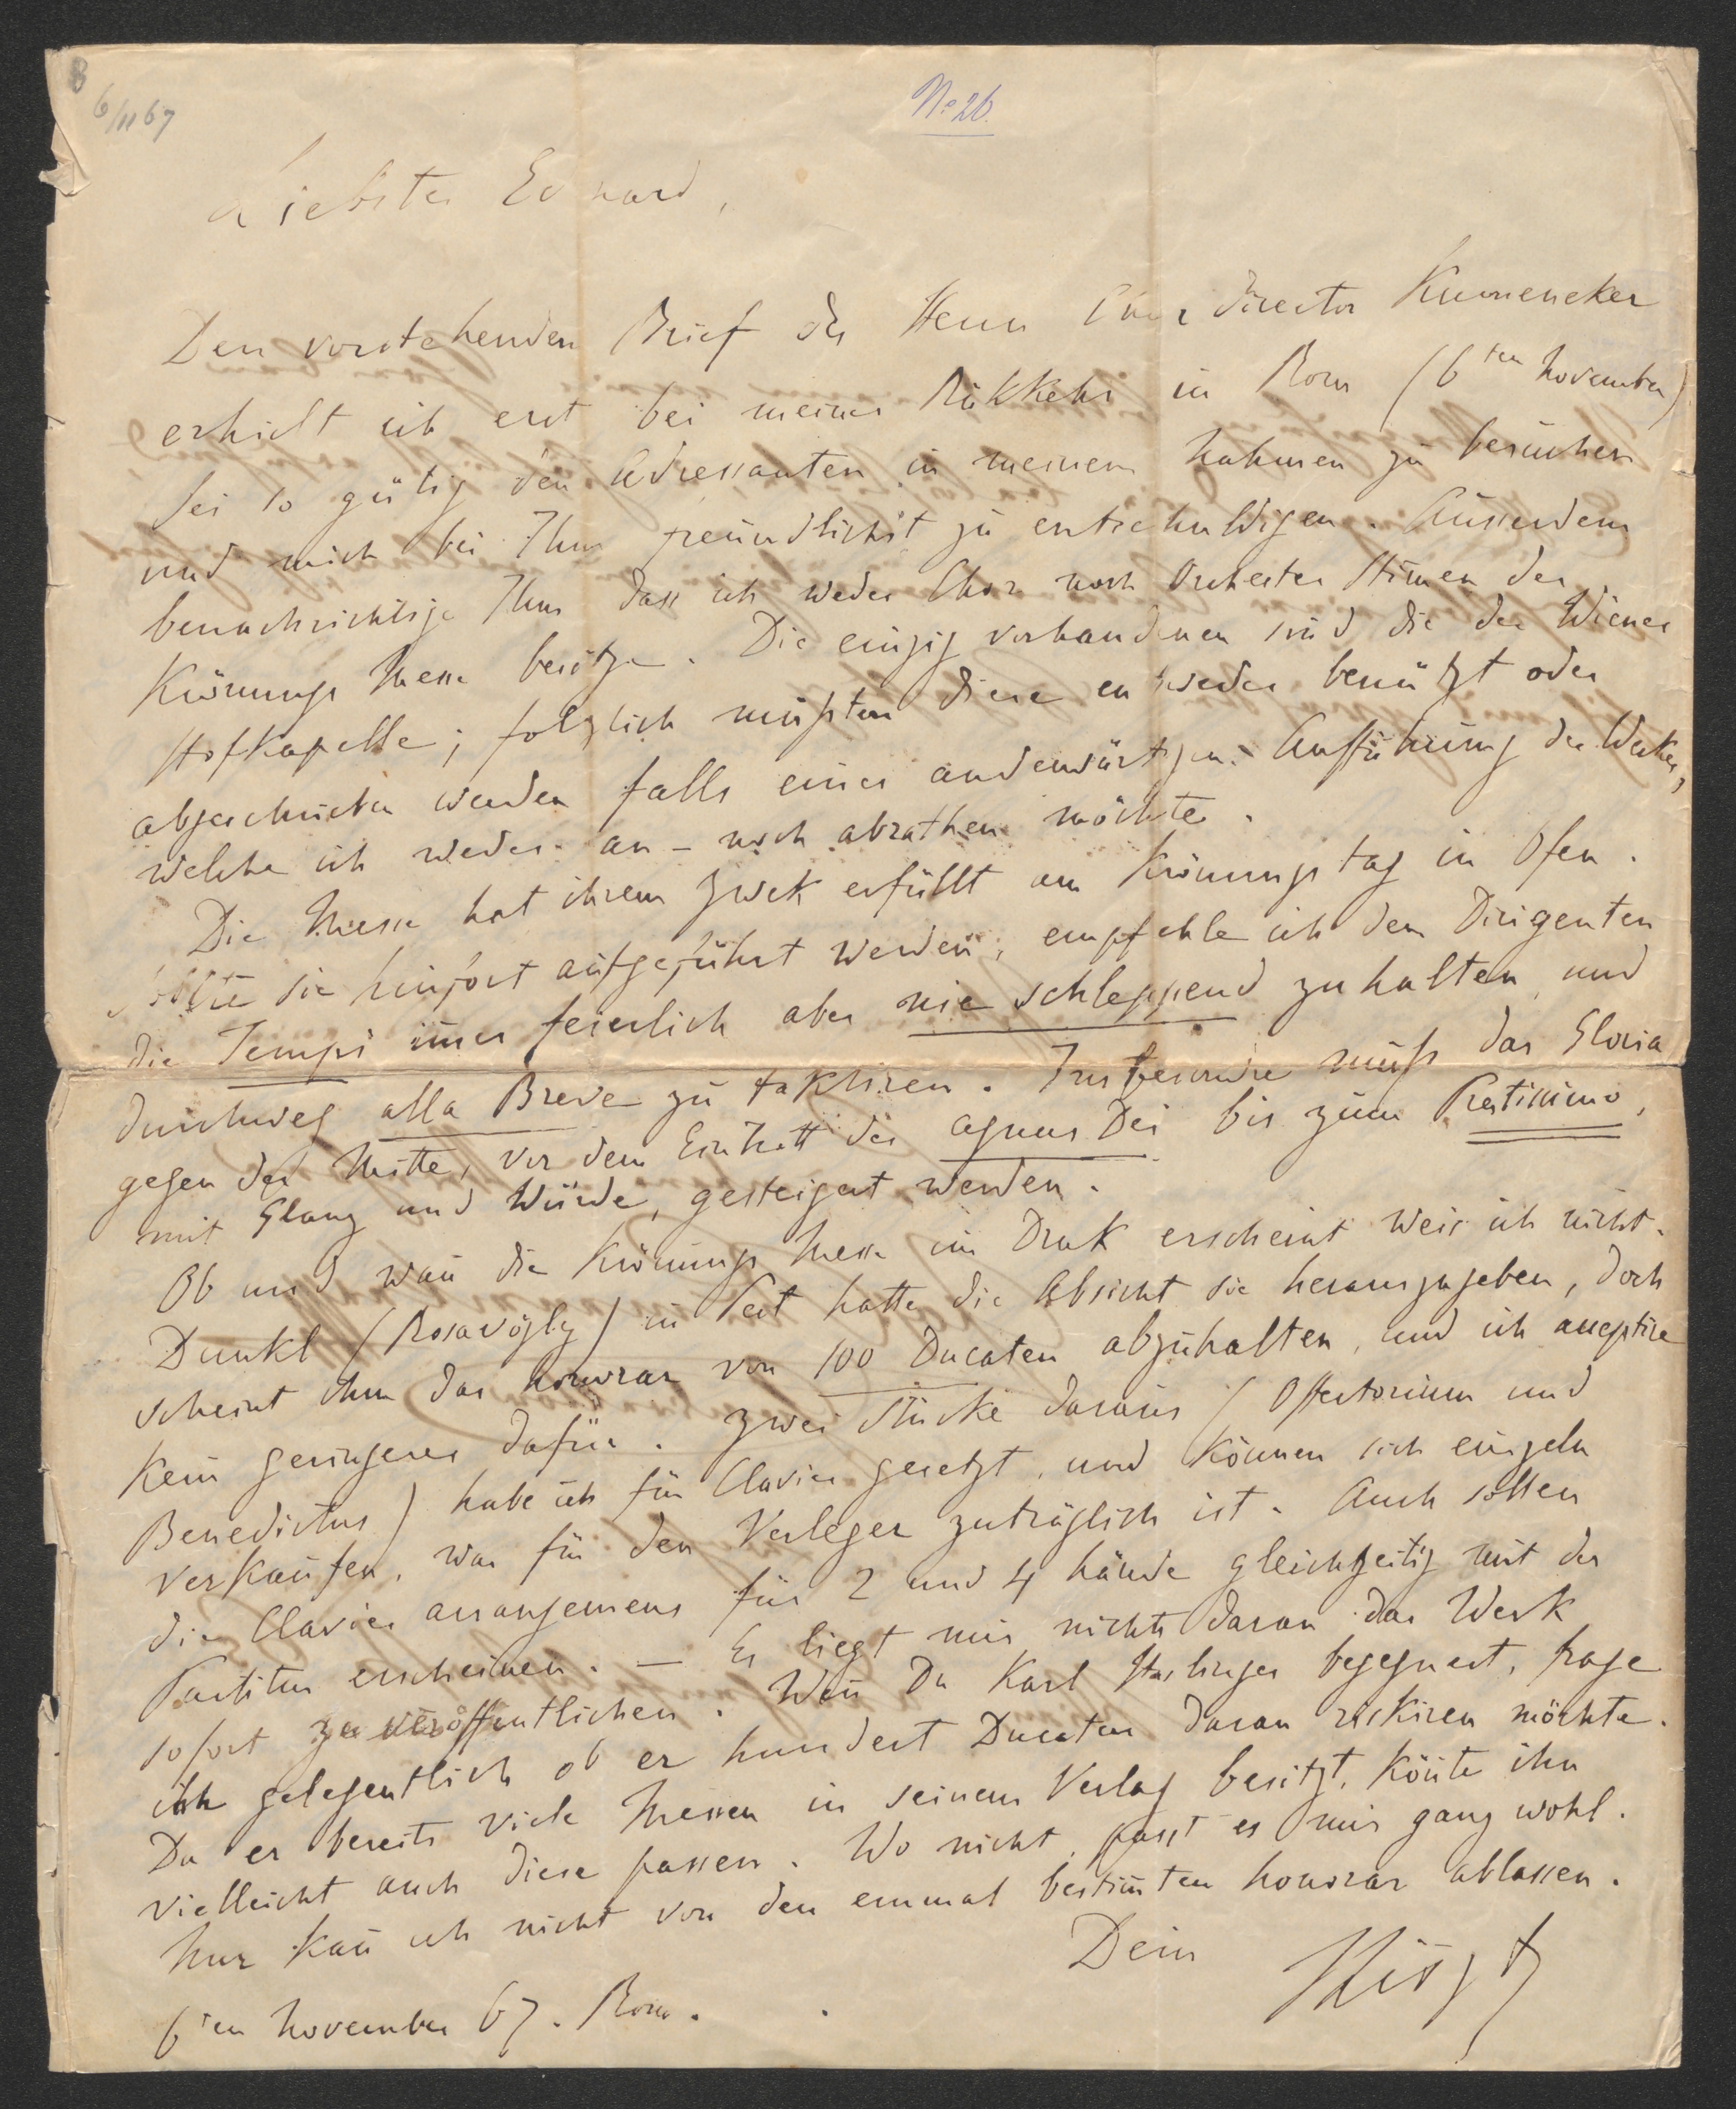 8
6/11 67
No 26.
Liebster Eduard,
Den vorstehenden Brief des Herrn Chor director
erhielt ich erst bei meiner Rükkehr in Rom (6ten November)
Sei so gütig den Adressanten in meinem Nahmen zu besuchen
und mich bei Ihm freundlichst zu entschuldigen. Ausserdem
benachrichtige Ihm dass ich weder Chor noch Orchester Stim̄en der
Krönungs Messe besitze. Die einzig vorhandenen sind die der Wiener
Hofkapelle; folglich müßten diese entweder benützt oder
abgeschrieben werden falls einer anderwärtigen Aufführung des Werkes,
welche ich weder an – noch abrathen möchte.
Die Messe hat ihrem Zwek erfüllt am Krönungstag in Ofen.
Sollte sie hinfort aufgeführt werden, empfehle ich dem Dirigenten
die Tempi im̄er feierlich aber nie schleppend zu halten und
durchweg alla Breve zu taktiren. Insbesondre muß das Gloria
gegen der Mitte, vor dem Eintritt des Agnus Dei bis zum Prestissimo,
mit Glanz und Würde, gesteigert werden.
Ob und wan̄ die Krönungs Messe im Druk erscheint weis ich nicht.
Dunkl (Rosavőlgy) in Pest hatte die Absicht sie herauszugeben, doch
scheint ihm das honorar von 100 Ducaten abzuhalten, und ich acceptire
kein geringeres dafür. Zwei Stücke daraus (Offertorium und
Benedictus) habe ich für Clavier gesetzt, und können sich einzeln
verkaufen, was für den Verleger zuträglich ist. Auch sollen
die Clavier arrangemens für 2 und 4 hände gleichzeitig mit der
Partitur erscheinen. – Es liegt mir nichts daran das Werk
sofort zu veröffentlichen. Wen̄ Du Karl Haslinger begegnest, frage
ihn gelegentlich ob er hundert Ducaten daran riskiren möchte.
Da er bereits viele Messen in seinem Verlag besitzt, kön̄te ihn
vielleicht auch diese passen. Wo nicht, passt es mir ganz wohl.
Nur kan̄ ich nicht von den einmal bestim̄ten honorar ablassen.
Dein FLiszt
6ten November 67. Rom.